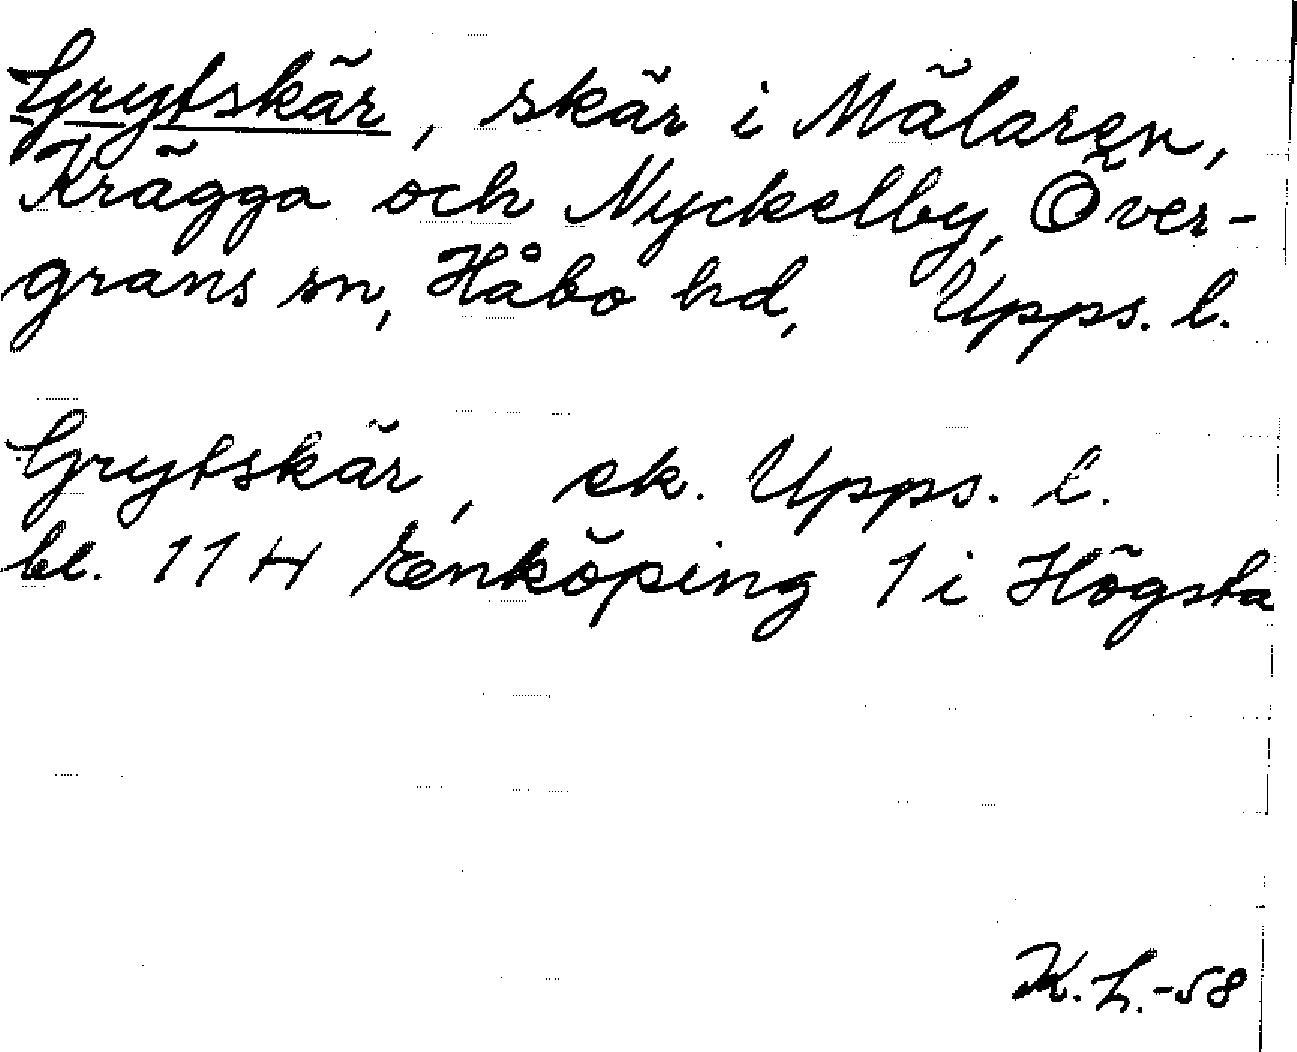 Grytskär, skär i Mälaren,
Krägga och Nyckelby, Över-
grans sn, Håbo hd, Upps. l.
Grytskär, ek. Upps. l.
bl. 11 H Enköping 1 i Högsta
K. L. -58